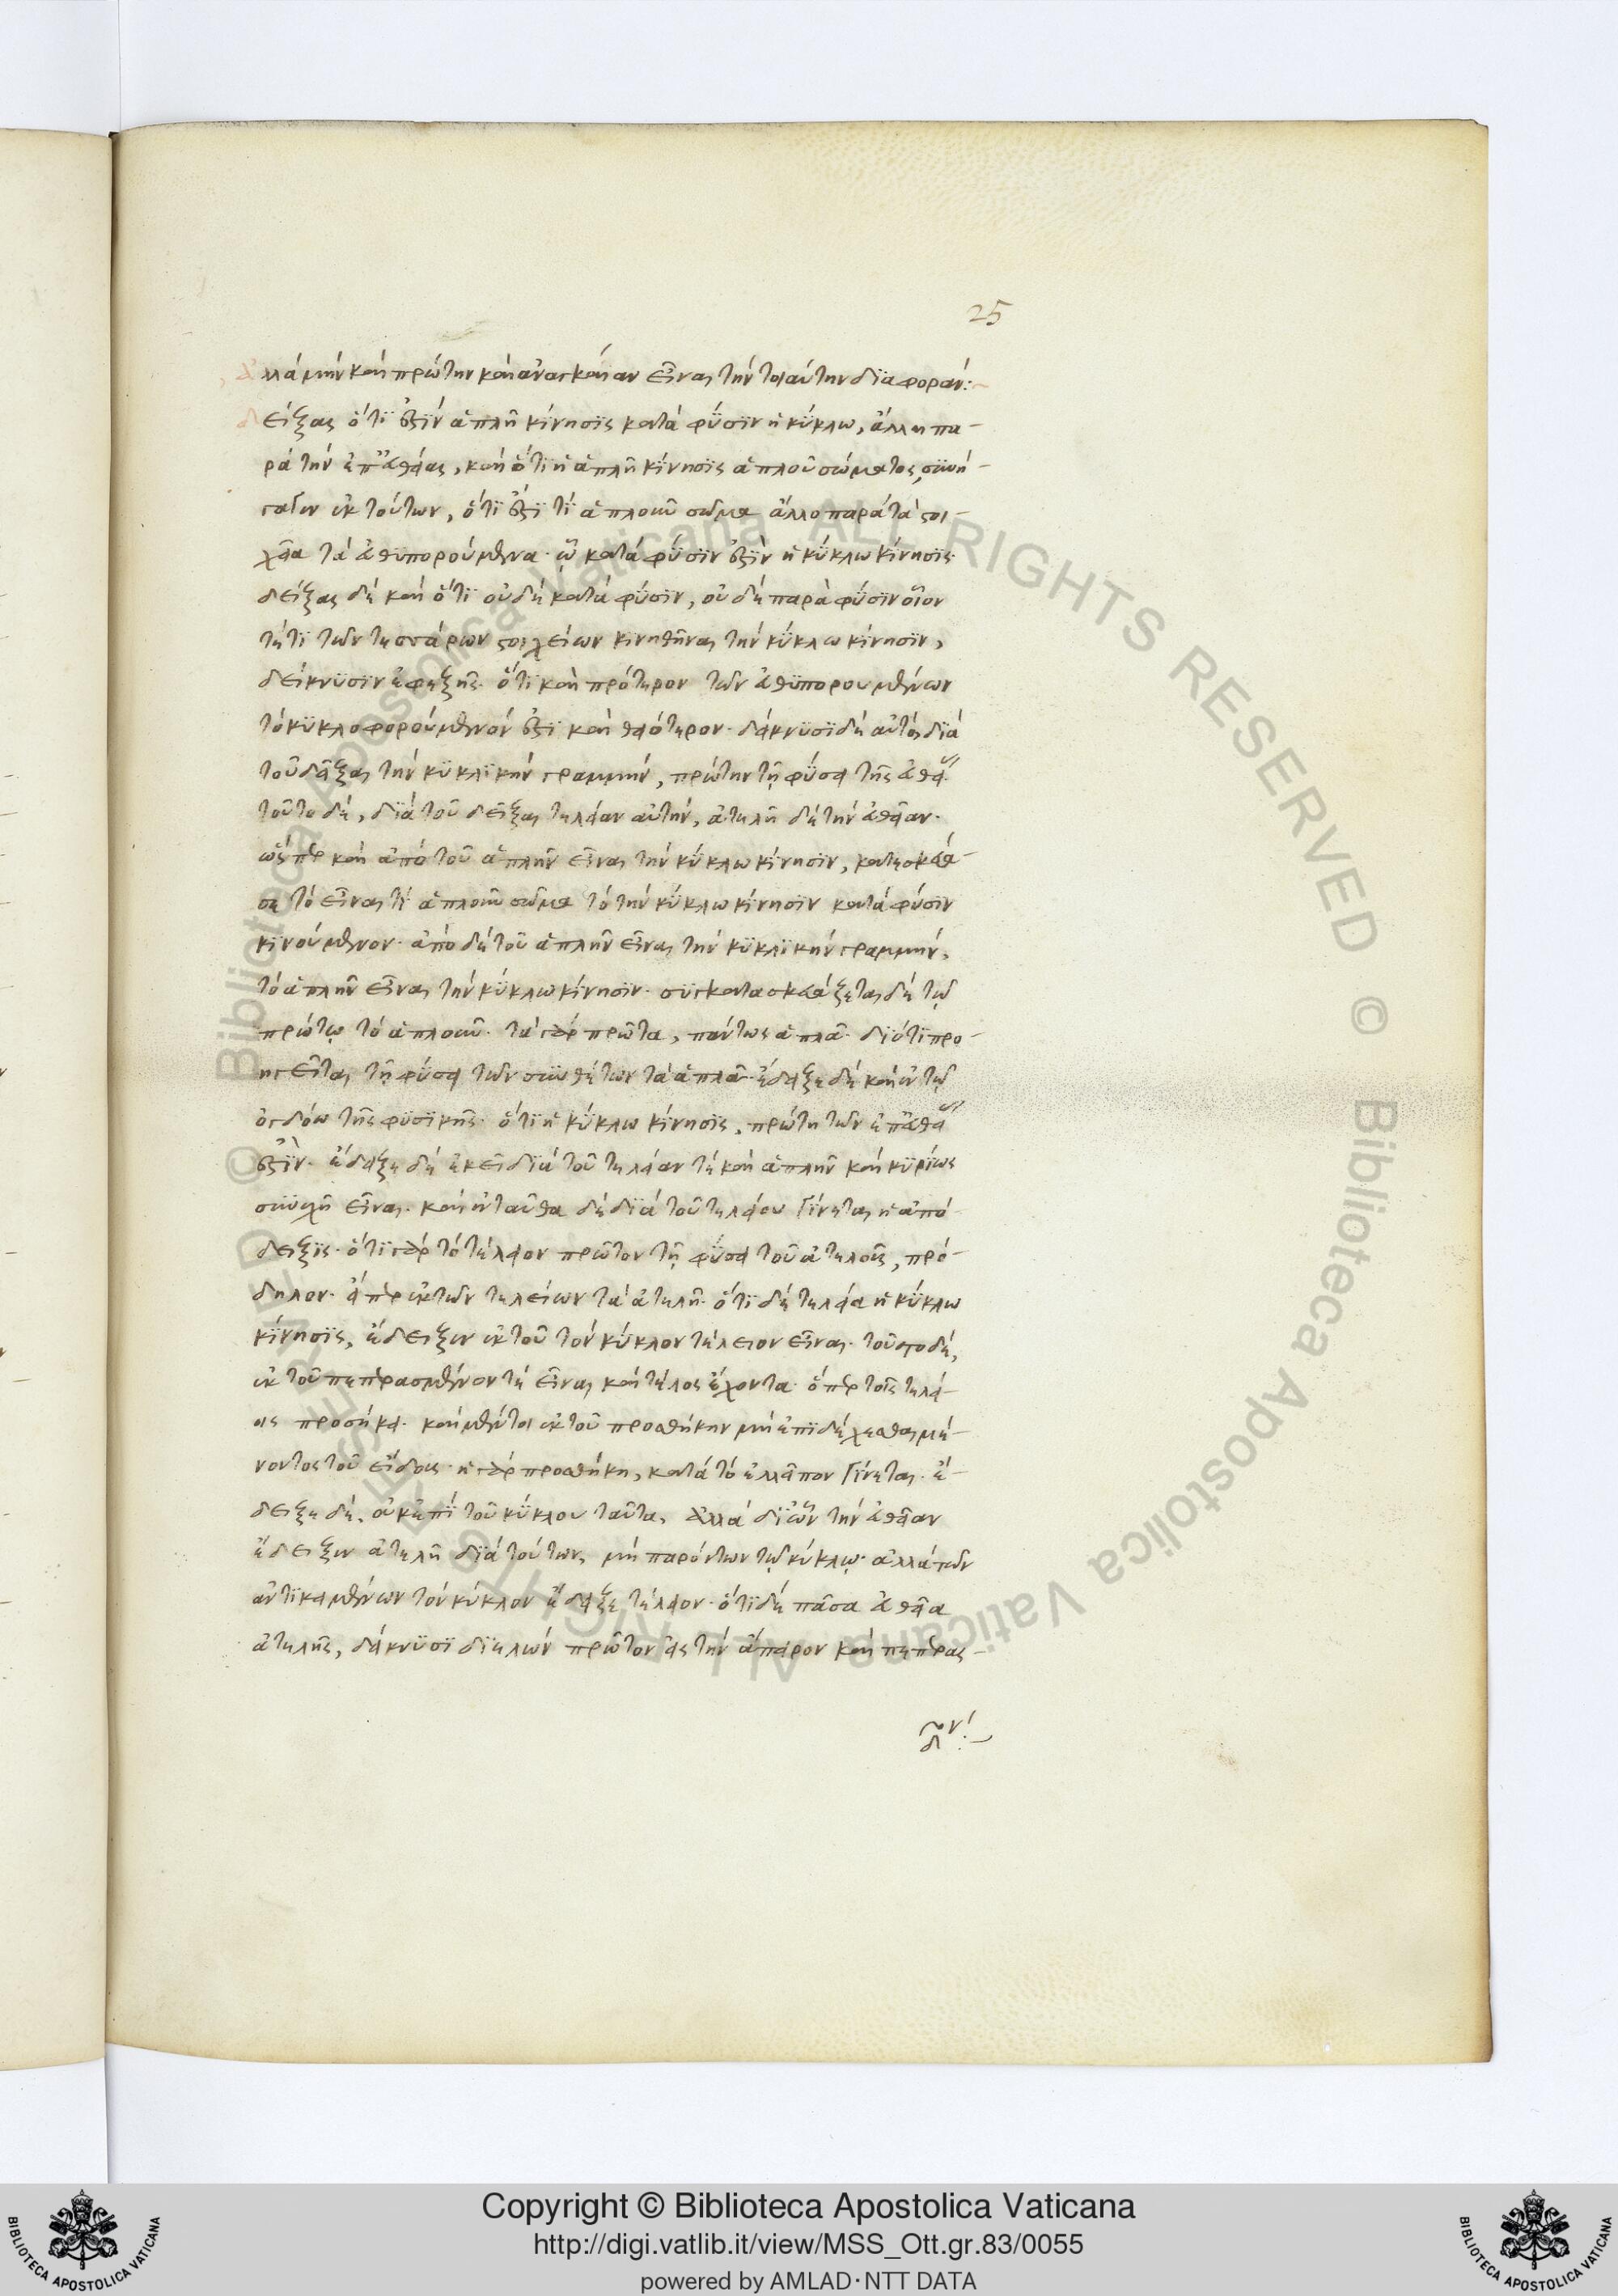 25
ἀλλά μὴν καὶ πρώτην καὶ ἀναγκαίαν εἶναι τὴν τοιαύτην διαφοράν:
δείξας ὅτι ἐστὶν ἁπλῆ κίνησις κατὰ φύσιν ἡ κύκλω, ἄλλη πα-
ρὰ τὴν ἐπ' εὐθείας, καὶ ὅτι ἡ ἁπλῆ κίνησις ἁπλοῦ σώματος, συνή-
γαγεν ἐκ τούτων, ὅτι ἐστί τι ἁπλοῦν σῶμα ἄλλο παρὰ τὰ στοι-
χεῖα τὰ εὐθυπορούμενα· ὧ κατὰ φύσιν ἐστὶν ἡ κύκλω κίνησις·
δείξας δὲ καὶ ὅτι οὐδὲ κατὰ φύσιν, οὐδὲ παρὰ φύσιν οἷον
τέ τι τῶν τεσσάρων στοιχείων κινηθῆναι τὴν κύκλω κίνησιν,
δείκνυσιν ἐφεξῆς· ὅτι καὶ πρότερον τῶν εὐθυπορουμένων
τὸ κυκλοφορούμενόν ἐστι καὶ θειότερον· δείκνυσι δὲ αὐτὸ, διὰ
τοῦ δεῖξαι τὴν κυκλικὴν γραμμὴν, πρώτην τῇ φύσει τῆς εὐθείας·
τοῦτο δὲ, διὰ τοῦ δεῖξαι τελείαν αὐτὴν, ἀτελῆ δὲ τὴν εὐθεῖαν·
ὥσπερ καὶ ἀπὸ τοῦ ἁπλῆν εἶναι τὴν κύκλω κίνησιν, κατεσκεύα-
σε τὸ εἶναί τι ἁπλοῦν σῶμα τὸ τὴν κύκλω κίνησιν κατὰ φύσιν
κινούμενον· ἀπὸ δὲ τοῦ ἁπλῆν εἶναι τὴν κυκλικὴν γραμμὴν,
τὸ ἁπλῆν εἶναι τὴν κύκλω κίνησιν· συγκατασκευάζεται δὲ τῷ
πρώτῳ τὸ ἁπλοῦν· τὰ γὰρ πρῶτα, πάντως ἁπλᾶ· διότι προ-
ηγεῖται τῇ φύσει τῶν συνθέτων τὰ ἁπλᾶ· ἔδειξε δὲ καὶ ἐν τῷ
ὀγδόω τῆς φυσικῆς· ὅτι ἡ κύκλω κίνησις, πρώτη τῶν ἐπ' εὐθείας
ἐστὶν· ἔδειξε δὲ ἐκεῖ διὰ τοῦ τελείαν τὲ καὶ ἁπλῆν καὶ κυρίως
συνεχῆ εἶναι· καὶ ἐνταῦθα δὲ διὰ τοῦ τελείου γίνεται ἡ ἀπό-
δειξις· ὅτι γὰρ τὸ τέλειον πρῶτον τῇ φύσει τοῦ ἀτελοῦς, πρό-
δηλον· εἴπερ ἐκ τῶν τελείων τὰ ἀτελῆ· ὅτι δὲ τελεία ἡ κύκλω
κίνησις, ἔδειξεν ἐκ τοῦ τὸν κύκλον τέλειον εἶναι· τοῦτο δὲ,
ἐκ τοῦ πεπερασμένον τὲ εἶναι καὶ τέλος ἔχοντα· ὅπερ τοῖς τελεί-
οις προσήκει· καὶ μέντοι ἐκ τοῦ προσθήκην μὴ ἐπιδέχεσθαι μέ-
νοντος τοῦ εἴδους· ἡ γὰρ προσθήκη, κατὰ τὸ ἐλλεῖπον γίνεται· ἔ-
δειξε δὲ, οὐκ ἐπὶ τοῦ κύκλου ταῦτα, ἀλλὰ δι' ὧν τὴν εὐθεῖαν
ἔδειξεν ἀτελῆ διὰ τούτων, μὴ παρόντων τῷ κύκλῳ· ἀλλὰ τῶν
ἀντικειμένων τὸν κύκλον ἔδειξε τέλειον· ὅτι δὲ πᾶσα εὐθεῖα
ἀτελὴς, δείκνυσι διελὼν πρῶτον εἰς τὴν ἄπειρον καὶ πεπερασ-